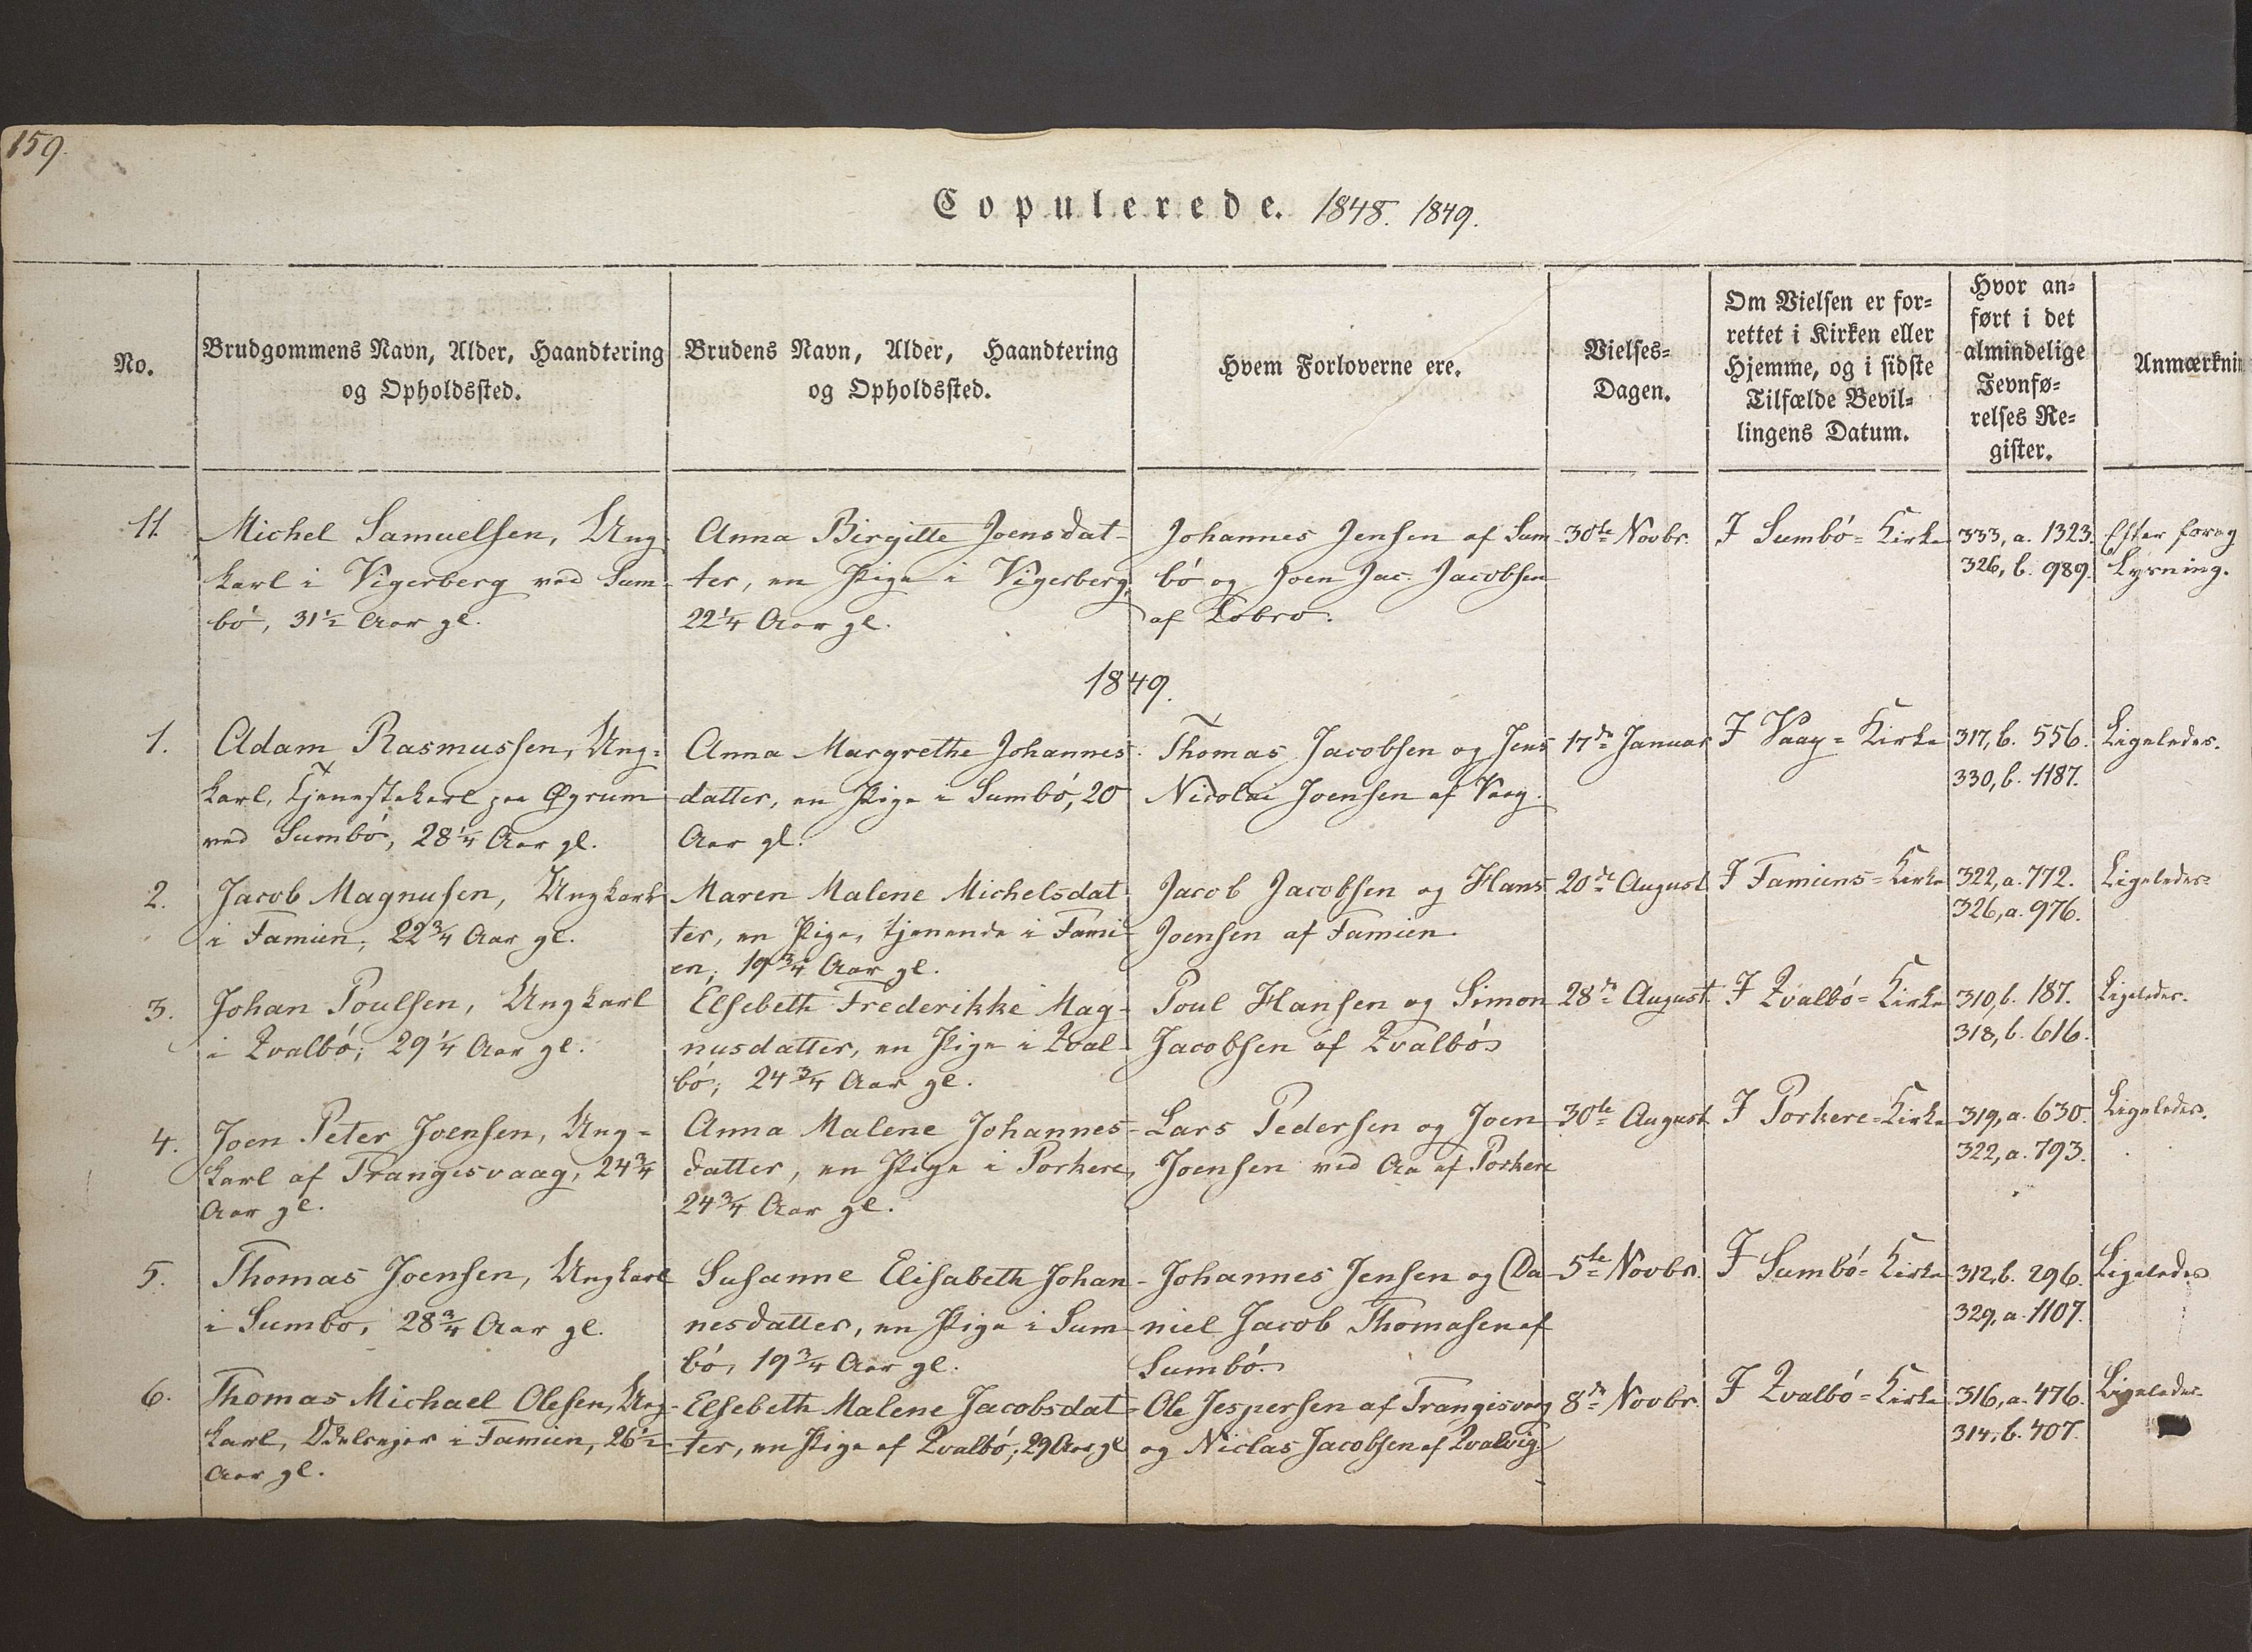 159.
Copulerede. 1848. 1849.
No.
Brudgommens Navn, Alder, Haandtering
og Opholdssted.
Brudens Navn, Alder, Haandtering
og Opholdssted.
Hvem Forloverne ere.
Vielses-
Dagen.
Om Vielsen er for-
rettet i Kirken eller
Hjemme, og i sidste
Tilfælde Bevil-
lingens Datum.
Hvor an-
ført i det
almindelige
Jevnfø-
relses Re-
gister.
Anmærknin
11.
Michel Samuelsen, Ung-
karl i Vigerberg ved Sum-
bó, 31½ Aar gl.
Anna Birgitte Joensdat-
ter, en Pige i Vigerberg,
22¼ Aar gl.
Johannes Jensen af Sum-
bó og Joen Jac. Jacobsen
af Lobro.
30te Novbr.
I Sumbó-Kirke
333, a. 1323.
326, b. 989.
Efter foreg
Lysning.
1849.
1.
Adam Rasmussen, Ung-
karl, Tjenestekarl paa Øyrum
ved Sumbó, 28¼ Aar gl.
Anna Margrethe Johannes-
datter, en Pige i Sumbó, 20
Aar gl.
Thomas Jacobsen og Jens
Nicolai Joensen af Vaag.
17de Januar
I Vaag-Kirke
317, b. 556.
330, b. 1187.
Ligeledes.
2.
Jacob Magnusen, Ungkarl
i Famien, 22¾ Aar gl.
Maren Malene Michelsdat-
ter, en Pige, tjenende i Fami-
en, 19¾ Aar gl.
Jacob Jacobsen og Hans
Joensen af Famien.
20de August
I Famiens-Kirke
322, a. 772.
326, a. 976.
Ligeledes.
3.
Johan Poulsen, Ungkarl
i Qvalbó, 29¼ Aar gl.
Elsebeth Frederikke Mag-
nusdatter, en Pige i Qval-
bó, 24¾ Aar gl.
Poul Hansen og Simon
Jacobsen af Qvalbó
28de August
I Qvalbó-Kirke
310, b. 187.
318, b. 616.
Ligeledes.
4.
Joen Peter Joensen, Ung-
karl af Trangisvaag, 24¾
Aar gl.
Anna Malene Johannes-
datter, en Pige i Porkere,
24¾ Aar gl.
Lars Pedersen og Joen
Joensen ved Aa af Porkere
30te August
I Porkere-Kirke
319, a. 630.
322, a. 793.
Ligeledes.
5.
Thomas Joensen, Ungkarl
i Sumbo, 28¾ Aar gl.
Susanne Elisabeth Johan-
nesdatter, en Pige i Sum-
bó, 19¾ Aar gl.
Johannes Jensen og Da-
niel Jacob Thomasen af
Sumbó.
5te Novbr.
I Sumbó-Kirke
312, b. 296.
329, a. 1107.
Ligeledes
6.
Thomas Michael Olesen, Ung-
karl, Odelsejer i Famien, 26½
Aar gl.
Elsebeth Malene Jacobsdat-
ter, en Pige af Qvalbó, 29 Aar gl
Ole Jespersen af Trangisvaag
og Niclas Jacobsen af Qvalvig.
8de Novbr.
I Qvalbó-Kirke
316, a. 476.
314, b. 407.
Ligeledes.